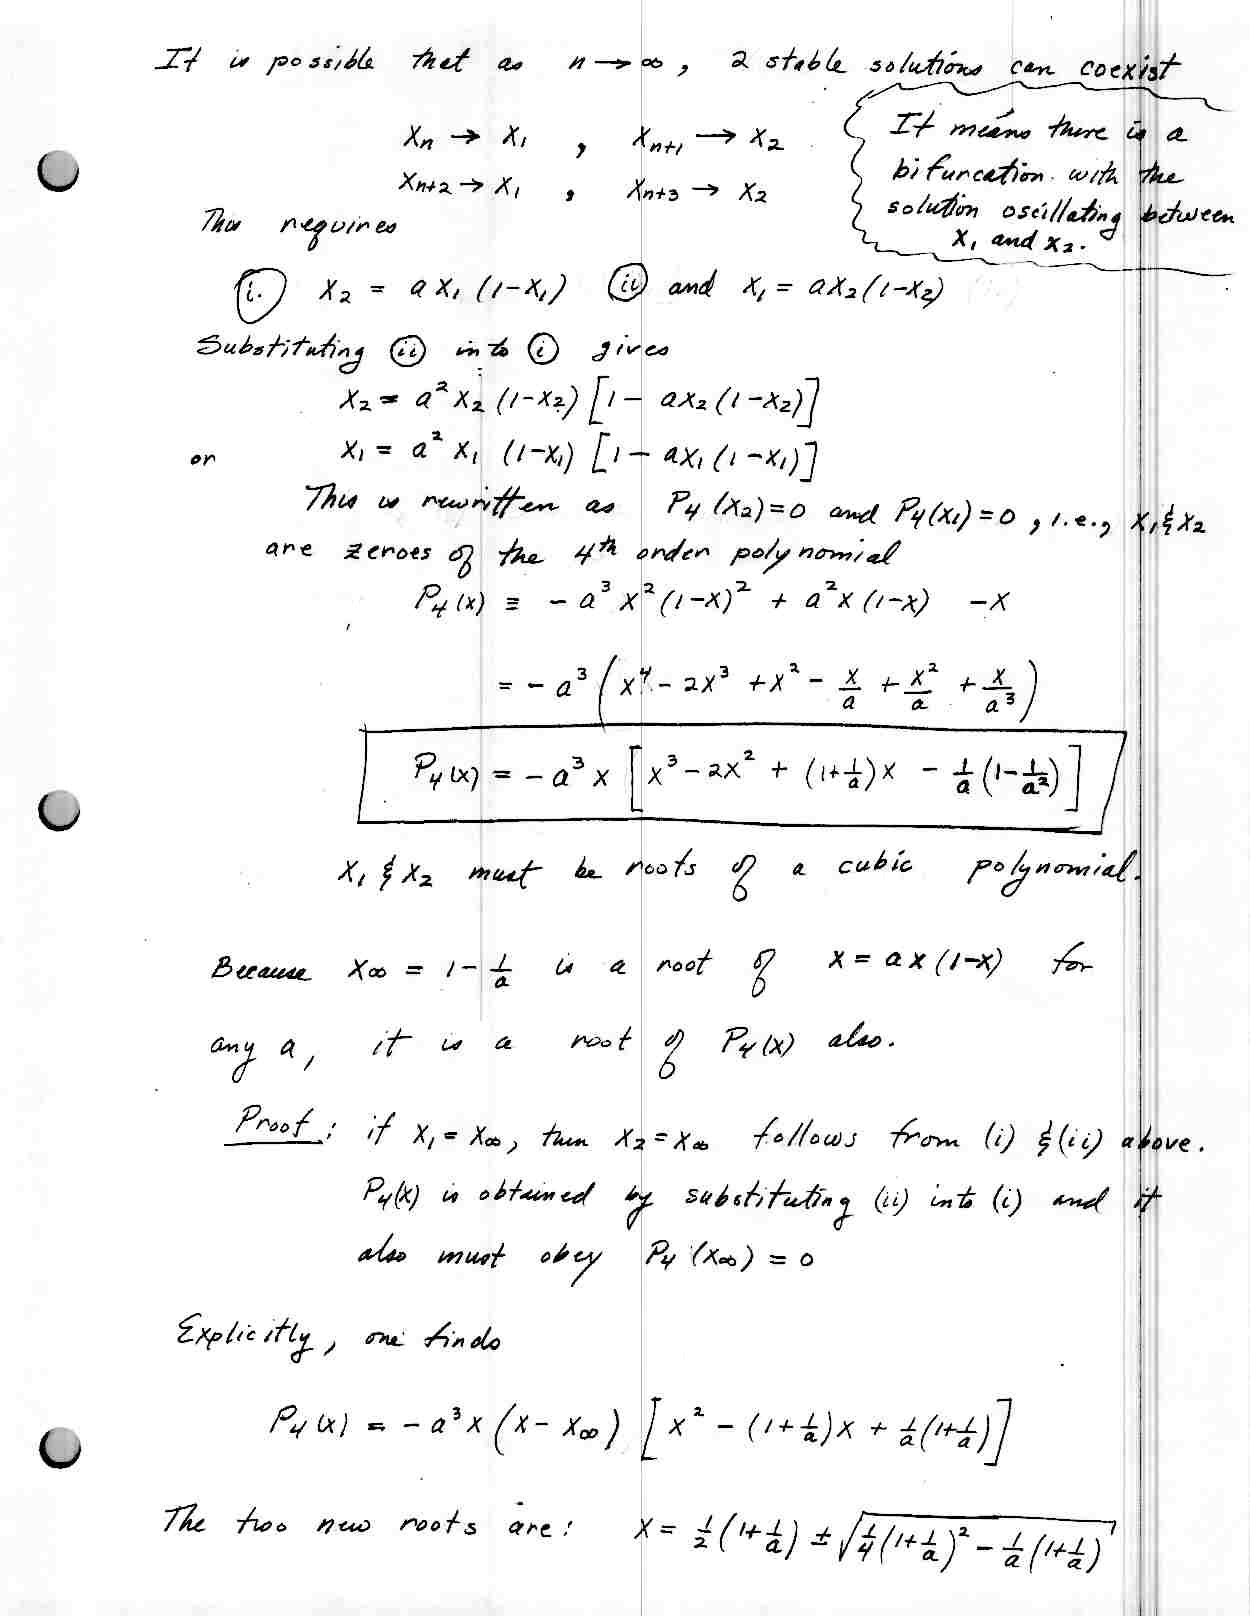 It is possible that as n → ∞, 2 stable solutions can coexist
Xn → X1 , Xn+1 → X2
Xn+2 → X1 , Xn+3 → X2
It means there is a
bifurcation with the
solution oscillating between
X1 and X2.
This requires
(i.) X2 = aX1(1-X1) (ii) and X1 = aX2(1-X2)
Substituting (ii) into (i) gives
X2 = a²X2(1-X2)[1 - aX2(1-X2)]
or X1 = a²X1(1-X1)[1 - aX1(1-X1)]
This is rewritten as P4(X2)=0 and P4(X1)=0, i.e., X1 & X2
are zeroes of the 4th order polynomial
P4(x) ≡ -a³x²(1-x)² + a²x(1-x) - x
= -a³(x⁴ - 2x³ + x² - x/a + x²/a + x/a³)
P4(x) = -a³x[x³ - 2x² + (1+1/a)x - 1/a(1-1/a²)]
X1 & X2 must be roots of a cubic polynomial.
Because X∞ = 1 - 1/a is a root of x = ax(1-x) for
any a, it is a root of P4(x) also.
Proof: if X1 = X∞, then X2 = X∞ follows from (i) & (ii) above.
P4(x) is obtained by substituting (ii) into (i) and it
also must obey P4(X∞) = 0
Explicitly, one finds
P4(x) = -a³x(x - X∞)[x² - (1+1/a)x + 1/a(1+1/a)]
The two new roots are: x = 1/2(1+1/a) ± √(1/4(1+1/a)² - 1/a(1+1/a))